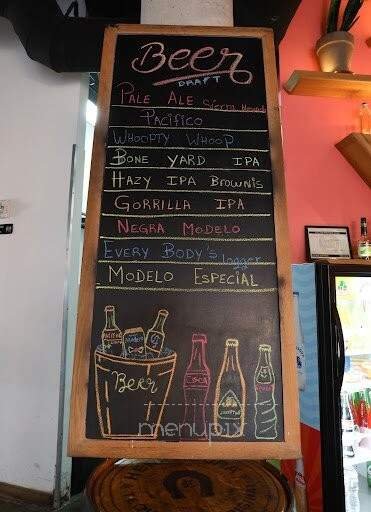 Beer
DRAFT
PALE ALE Sierra Nevada
PACIFICO
WHOOPTY WHOOP
BONE YARD IPA
HAZY IPA BROWNIS
GORRILLA IPA
NEGRA MODELO
EVERY BODY'S logger
MODELO ESPECIAL
Beer
COCA
menupix